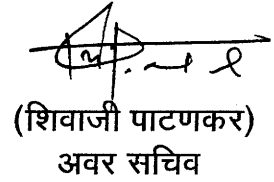 (शिवाजी पाटणकर)
अवर सचिव